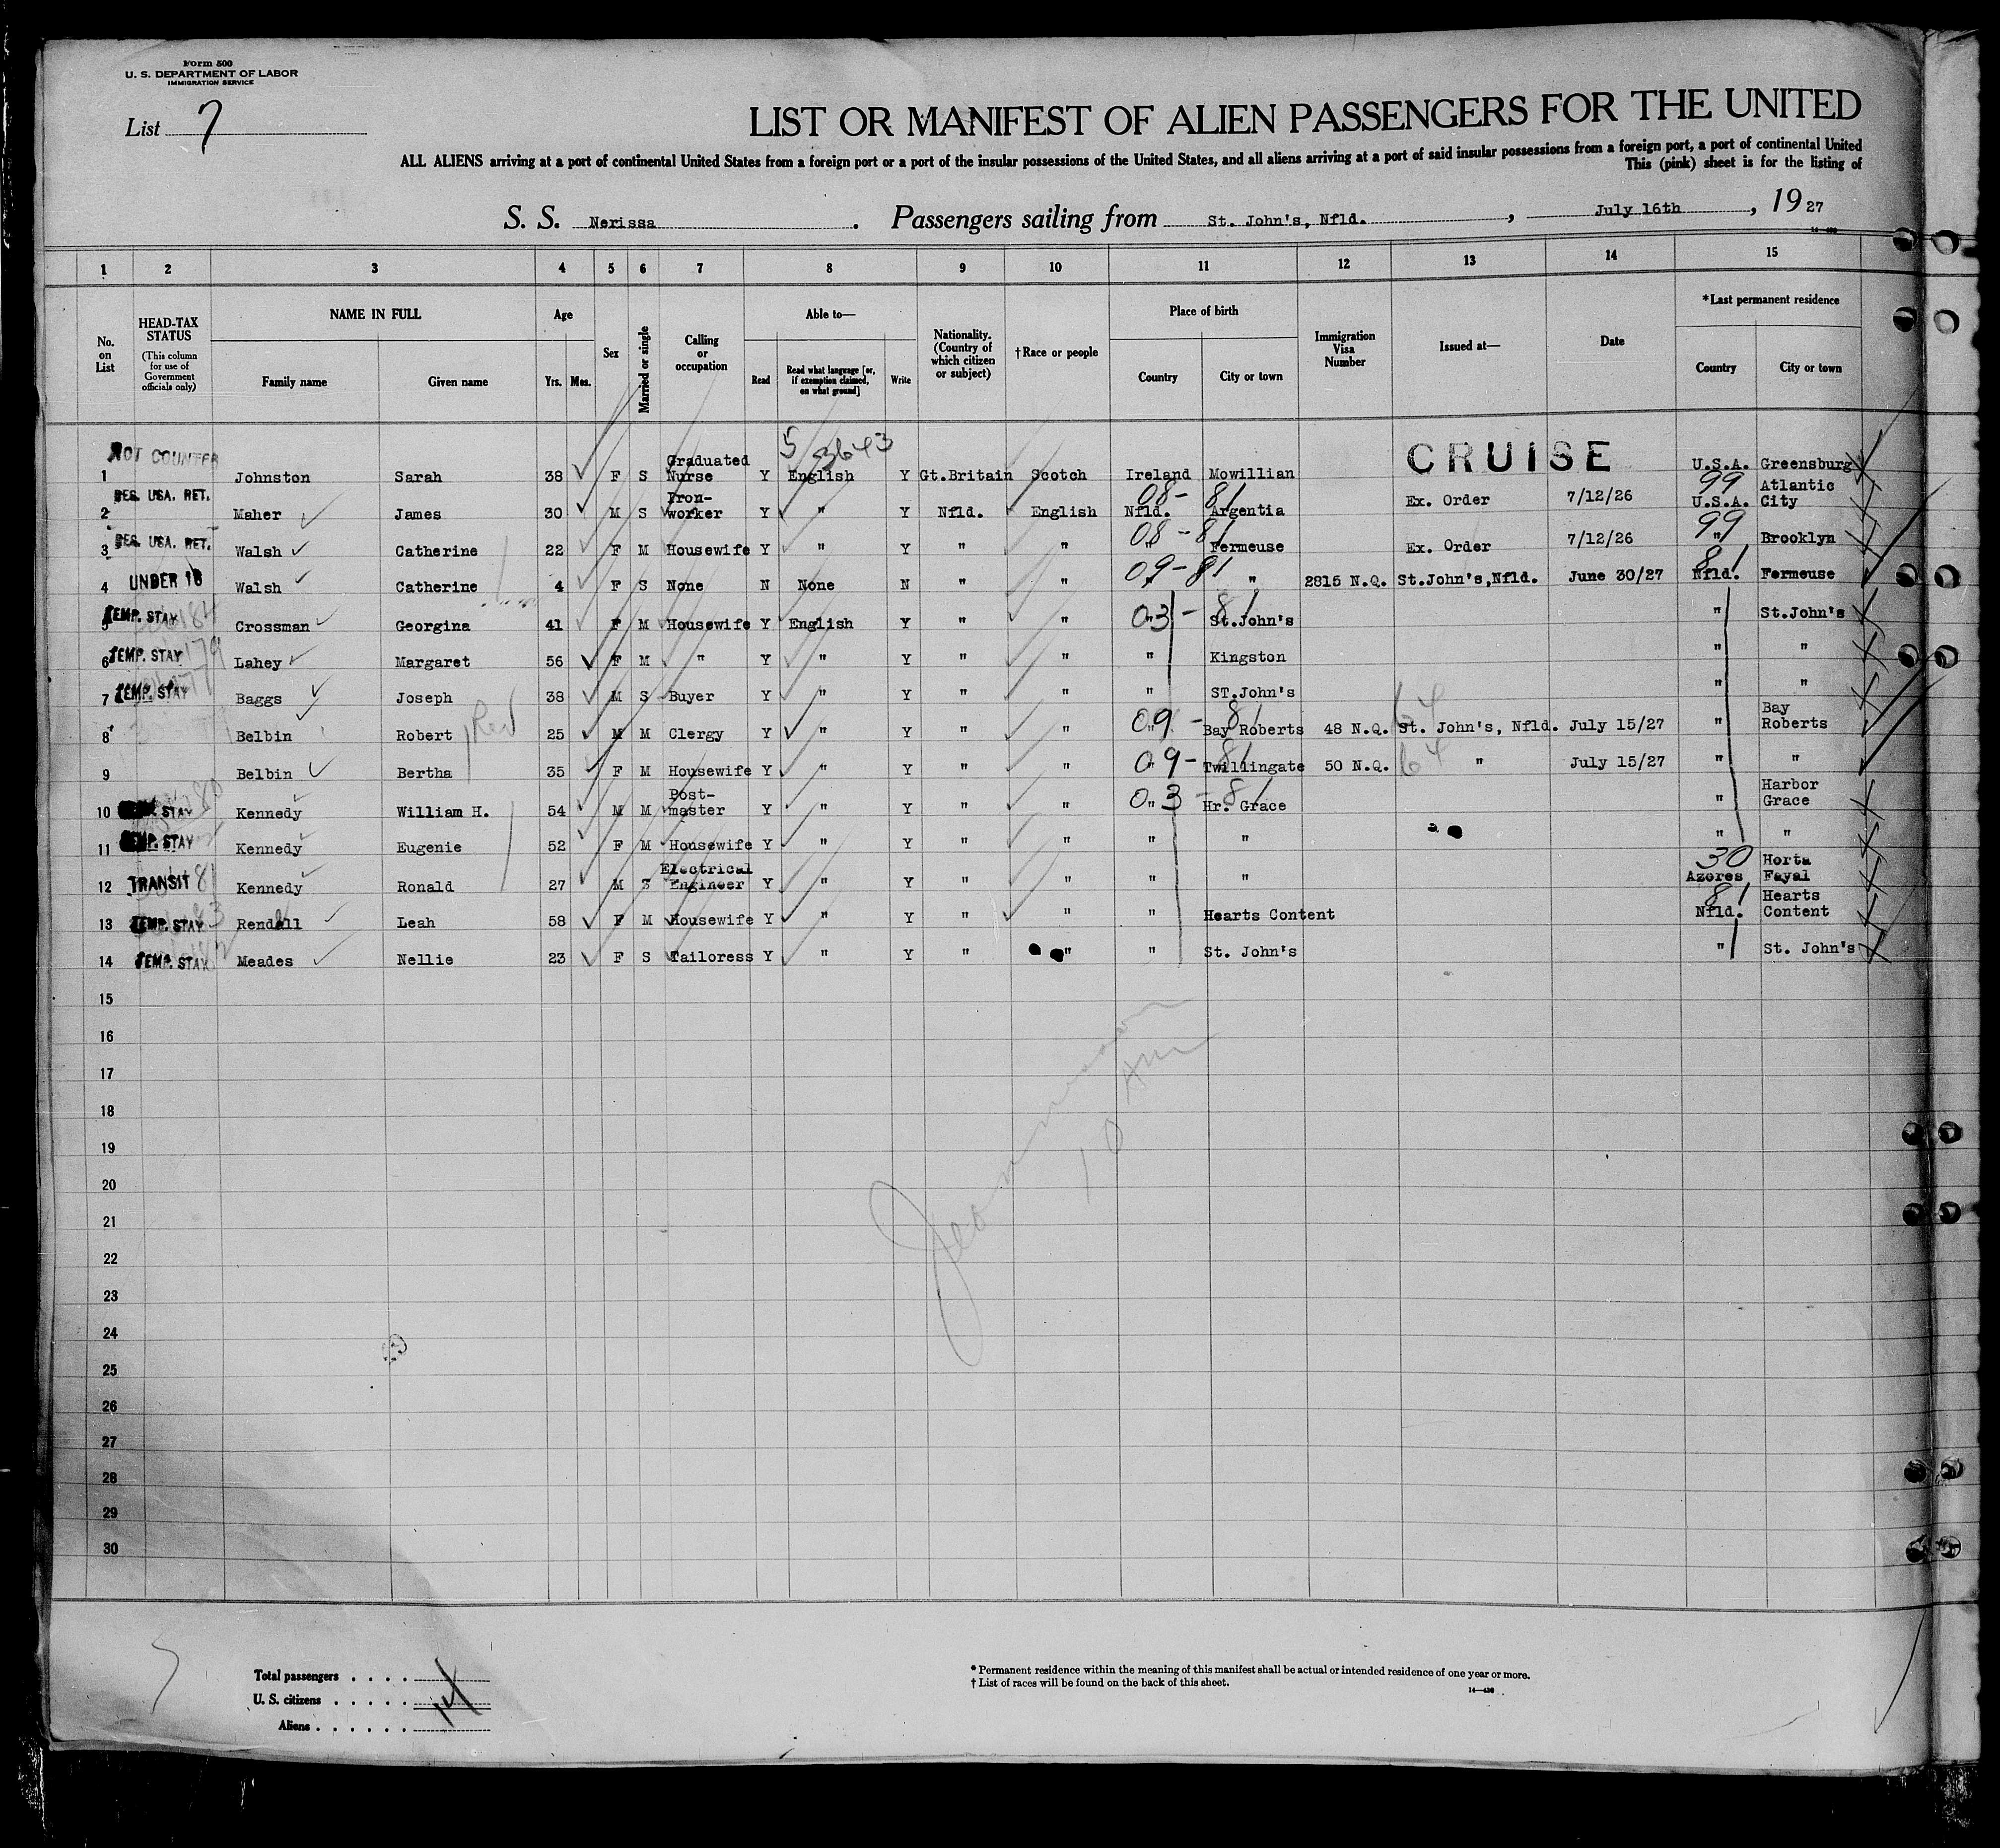 Form 500
U. S. DEPARTMENT OF LABOR
IMMIGRATION SERVICE
List 7
LIST OR MANIFEST OF ALIEN PASSENGERS FOR THE UNITED
ALL ALIENS arriving at a port of continental United States from a foreign port or a port of the insular possessions of the United States, and all aliens arriving at a port of said insular possessions from a foreign port, a port of continental United
This (pink) sheet is for the listing of
S. S. Nerissa. Passengers sailing from St. John's, Nfld., July 16th, 1927
1 2 3 4 5 6 7 8 9 10 11 12 13 14 15
No. on List
HEAD-TAX STATUS
(This column for use of Government officials only)
NAME IN FULL
Family name Given name
Age
Yrs. Mos.
Sex
Married or single
Calling or occupation
Able to—
Read
Read what language [or, if exemption claimed, on what ground]
Write
Nationality. (Country of which citizen or subject)
† Race or people
Place of birth
Country City or town
Immigration Visa Number
Issued at—
Date
*Last permanent residence
Country City or town
5 3643
CRUISE
1 NOT COUNTER Johnston Sarah 38 F S Graduated Nurse Y English Y Gt.Britain Scotch Ireland Mowillian U.S.A. Greensburg
2 RES. USA. RET. Maher James 30 M S Iron-worker Y " Y Nfld. English 08- 81 Nfld. Argentia Ex. Order 7/12/26 99 U.S.A. Atlantic City
3 RES. USA. RET. Walsh Catherine 22 F M Housewife Y " Y " " 08-81 " Fermeuse Ex. Order 7/12/26 99 " Brooklyn
4 UNDER 16 Walsh Catherine 4 F S None N None N " " 09-81 " " 2815 N.Q. St.John's,Nfld. June 30/27 81 Nfld. Fermeuse
5 TEMP. STAY Crossman Georgina 41 F M Housewife Y English Y " " 03-81 " St.John's " St.John's
6 TEMP. STAY Lahey Margaret 56 F M " Y " Y " " " Kingston " "
7 TEMP. STAY Baggs Joseph 38 M S Buyer Y " Y " " " ST.John's " "
8 Belbin Robert Rev 25 M M Clergy Y " Y " " 09-81 " Bay Roberts 48 N.Q. 64 St. John's, Nfld. July 15/27 " Bay Roberts
9 Belbin Bertha 35 F M Housewife Y " Y " " 09-81 " Twillingate 50 N.Q. 64 " July 15/27 " "
10 STAY Kennedy William H. 54 M M Post-master Y " Y " " 03-81 " Hr. Grace " Harbor Grace
11 TEMP. STAY Kennedy Eugenie 52 F M Housewife Y " Y " " " " " "
12 TRANSIT Kennedy Ronald 27 M S Electrical Engineer Y " Y " " " " 30 Azores Horta Fayal
13 TEMP. STAY Rendell Leah 58 F M Housewife Y " Y " " " Hearts Content 81 Nfld. Hearts Content
14 TEMP. STAY Meades Nellie 23 F S Tailoress Y " Y " " " St. John's " St. John's
15
16
17
18
19
20
21
22
23
24
25
26
27
28
29
30
10 am
Total passengers . . . .
U. S. citizens . . . . . 14
Aliens . . . . . .
* Permanent residence within the meaning of this manifest shall be actual or intended residence of one year or more.
† List of races will be found on the back of this sheet.
14—430